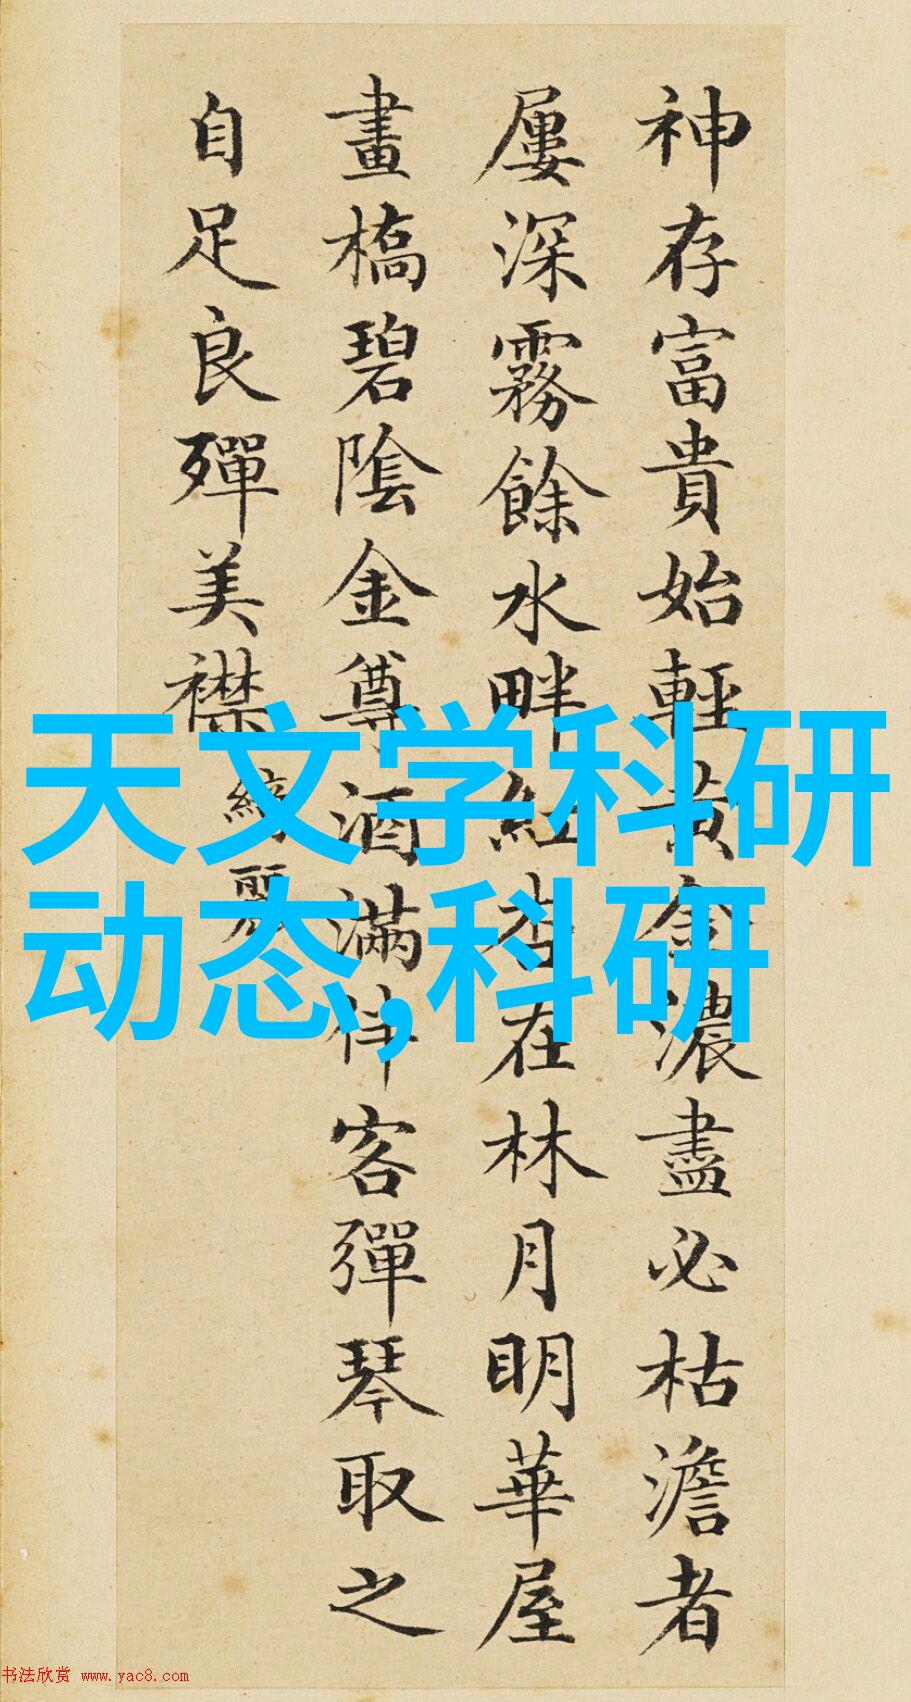 神存富貴始輕黃金濃盡必枯澹者
屢深霧餘水畔紅杏在林月明華屋
畫橋碧陰金尊酒滿伴客彈琴取之
自足良殫美襟 綺麗
天文学科研
动态,科研
书法欣赏 www.yac8.com